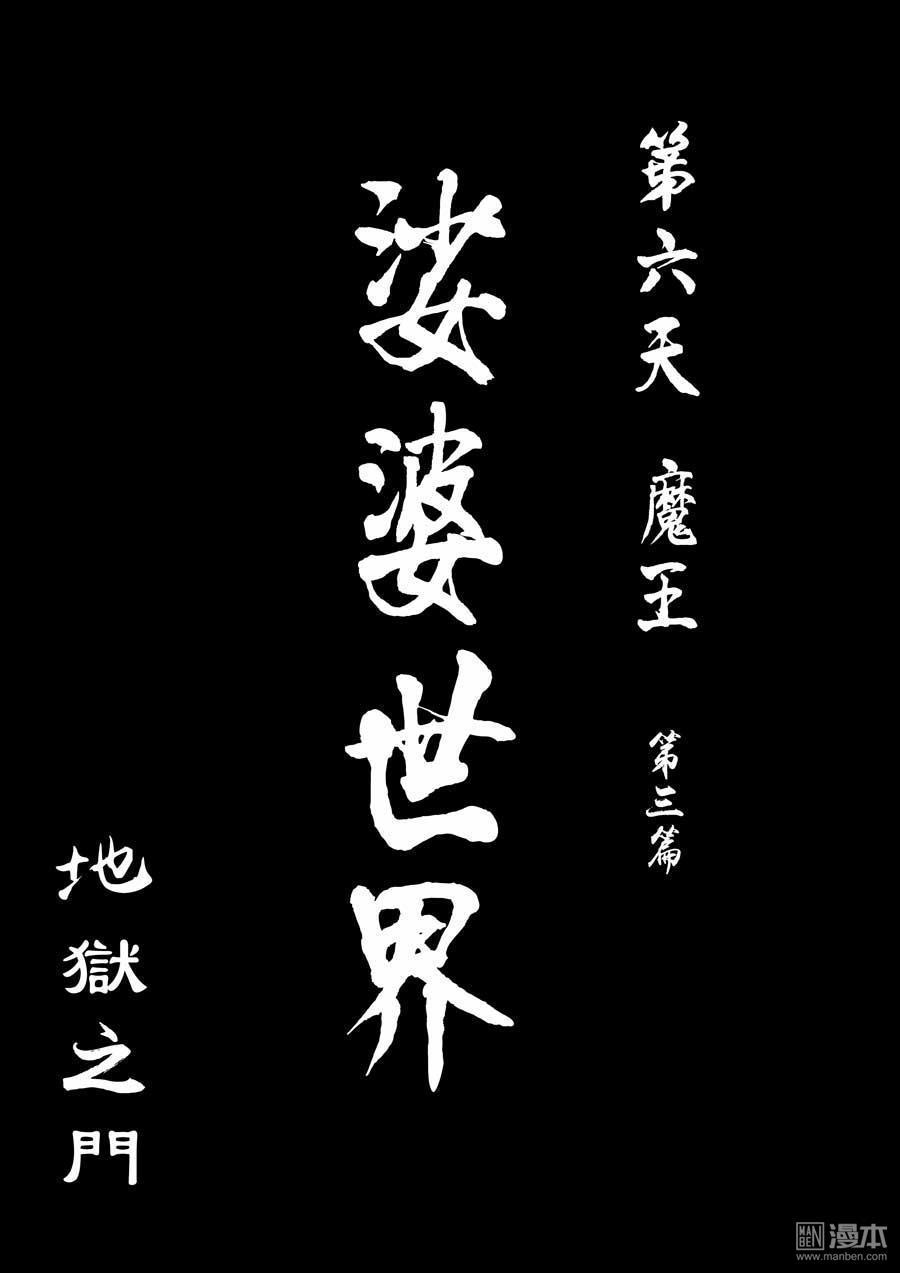 第六天 魔王 第三篇
娑婆世界
地獄之門
MANBEN漫本
www.manben.com